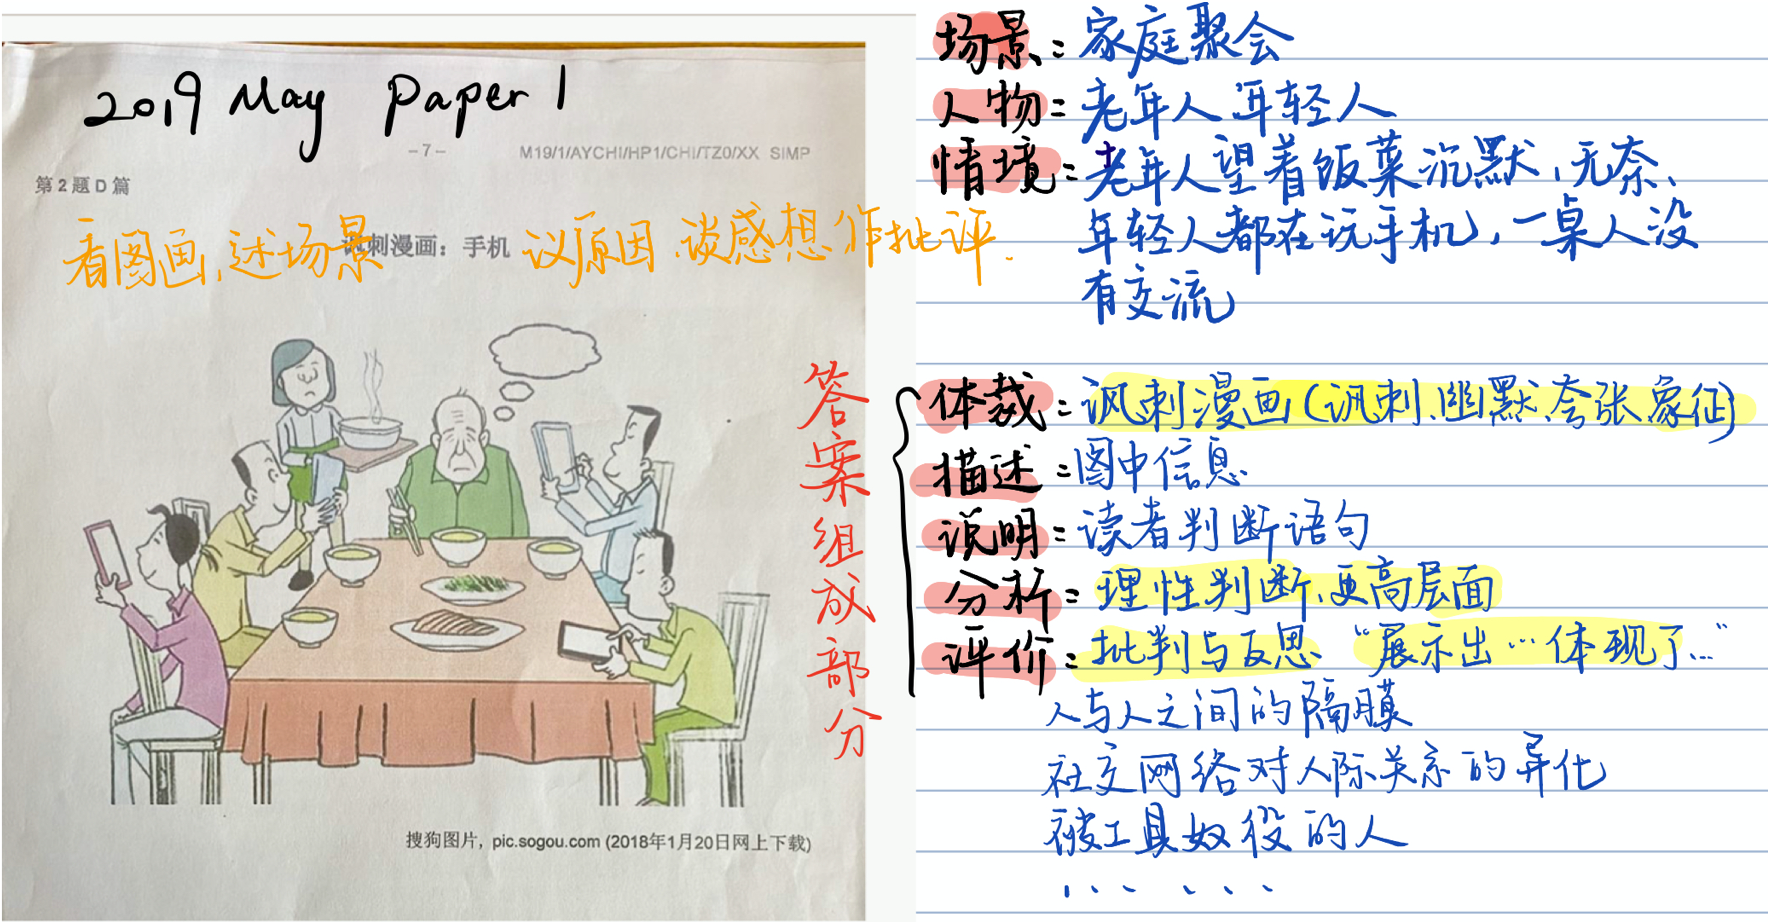 2019 May Paper 1
– 7 –
M19/1/AYCHI/HP1/CHI/TZ0/XX SIMP
第 2 题 D 篇
看图画,述场景 议原因、谈感想、作批评.
讽刺漫画：手机
搜狗图片, pic.sogou.com (2018年1月20日网上下载)
答案组成部分
场景：家庭聚会
人物：老年人 年轻人
情境：老年人望着饭菜沉默、无奈、
年轻人都在玩手机, 一桌人没
有交流
体裁：讽刺漫画(讽刺、幽默、夸张象征)
描述：图中信息
说明：读者判断语句
分析：理性判断、更高层面
评价：批判与反思 “展示出…体现了…”
人与人之间的隔膜
社交网络对人际关系的异化
被工具奴役的人
......